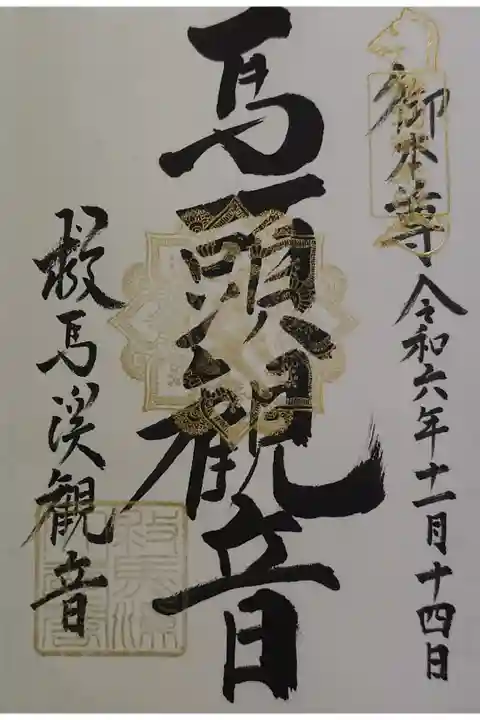 御本尊 令和六年十一月十四日
馬頭観音
救馬渓観音